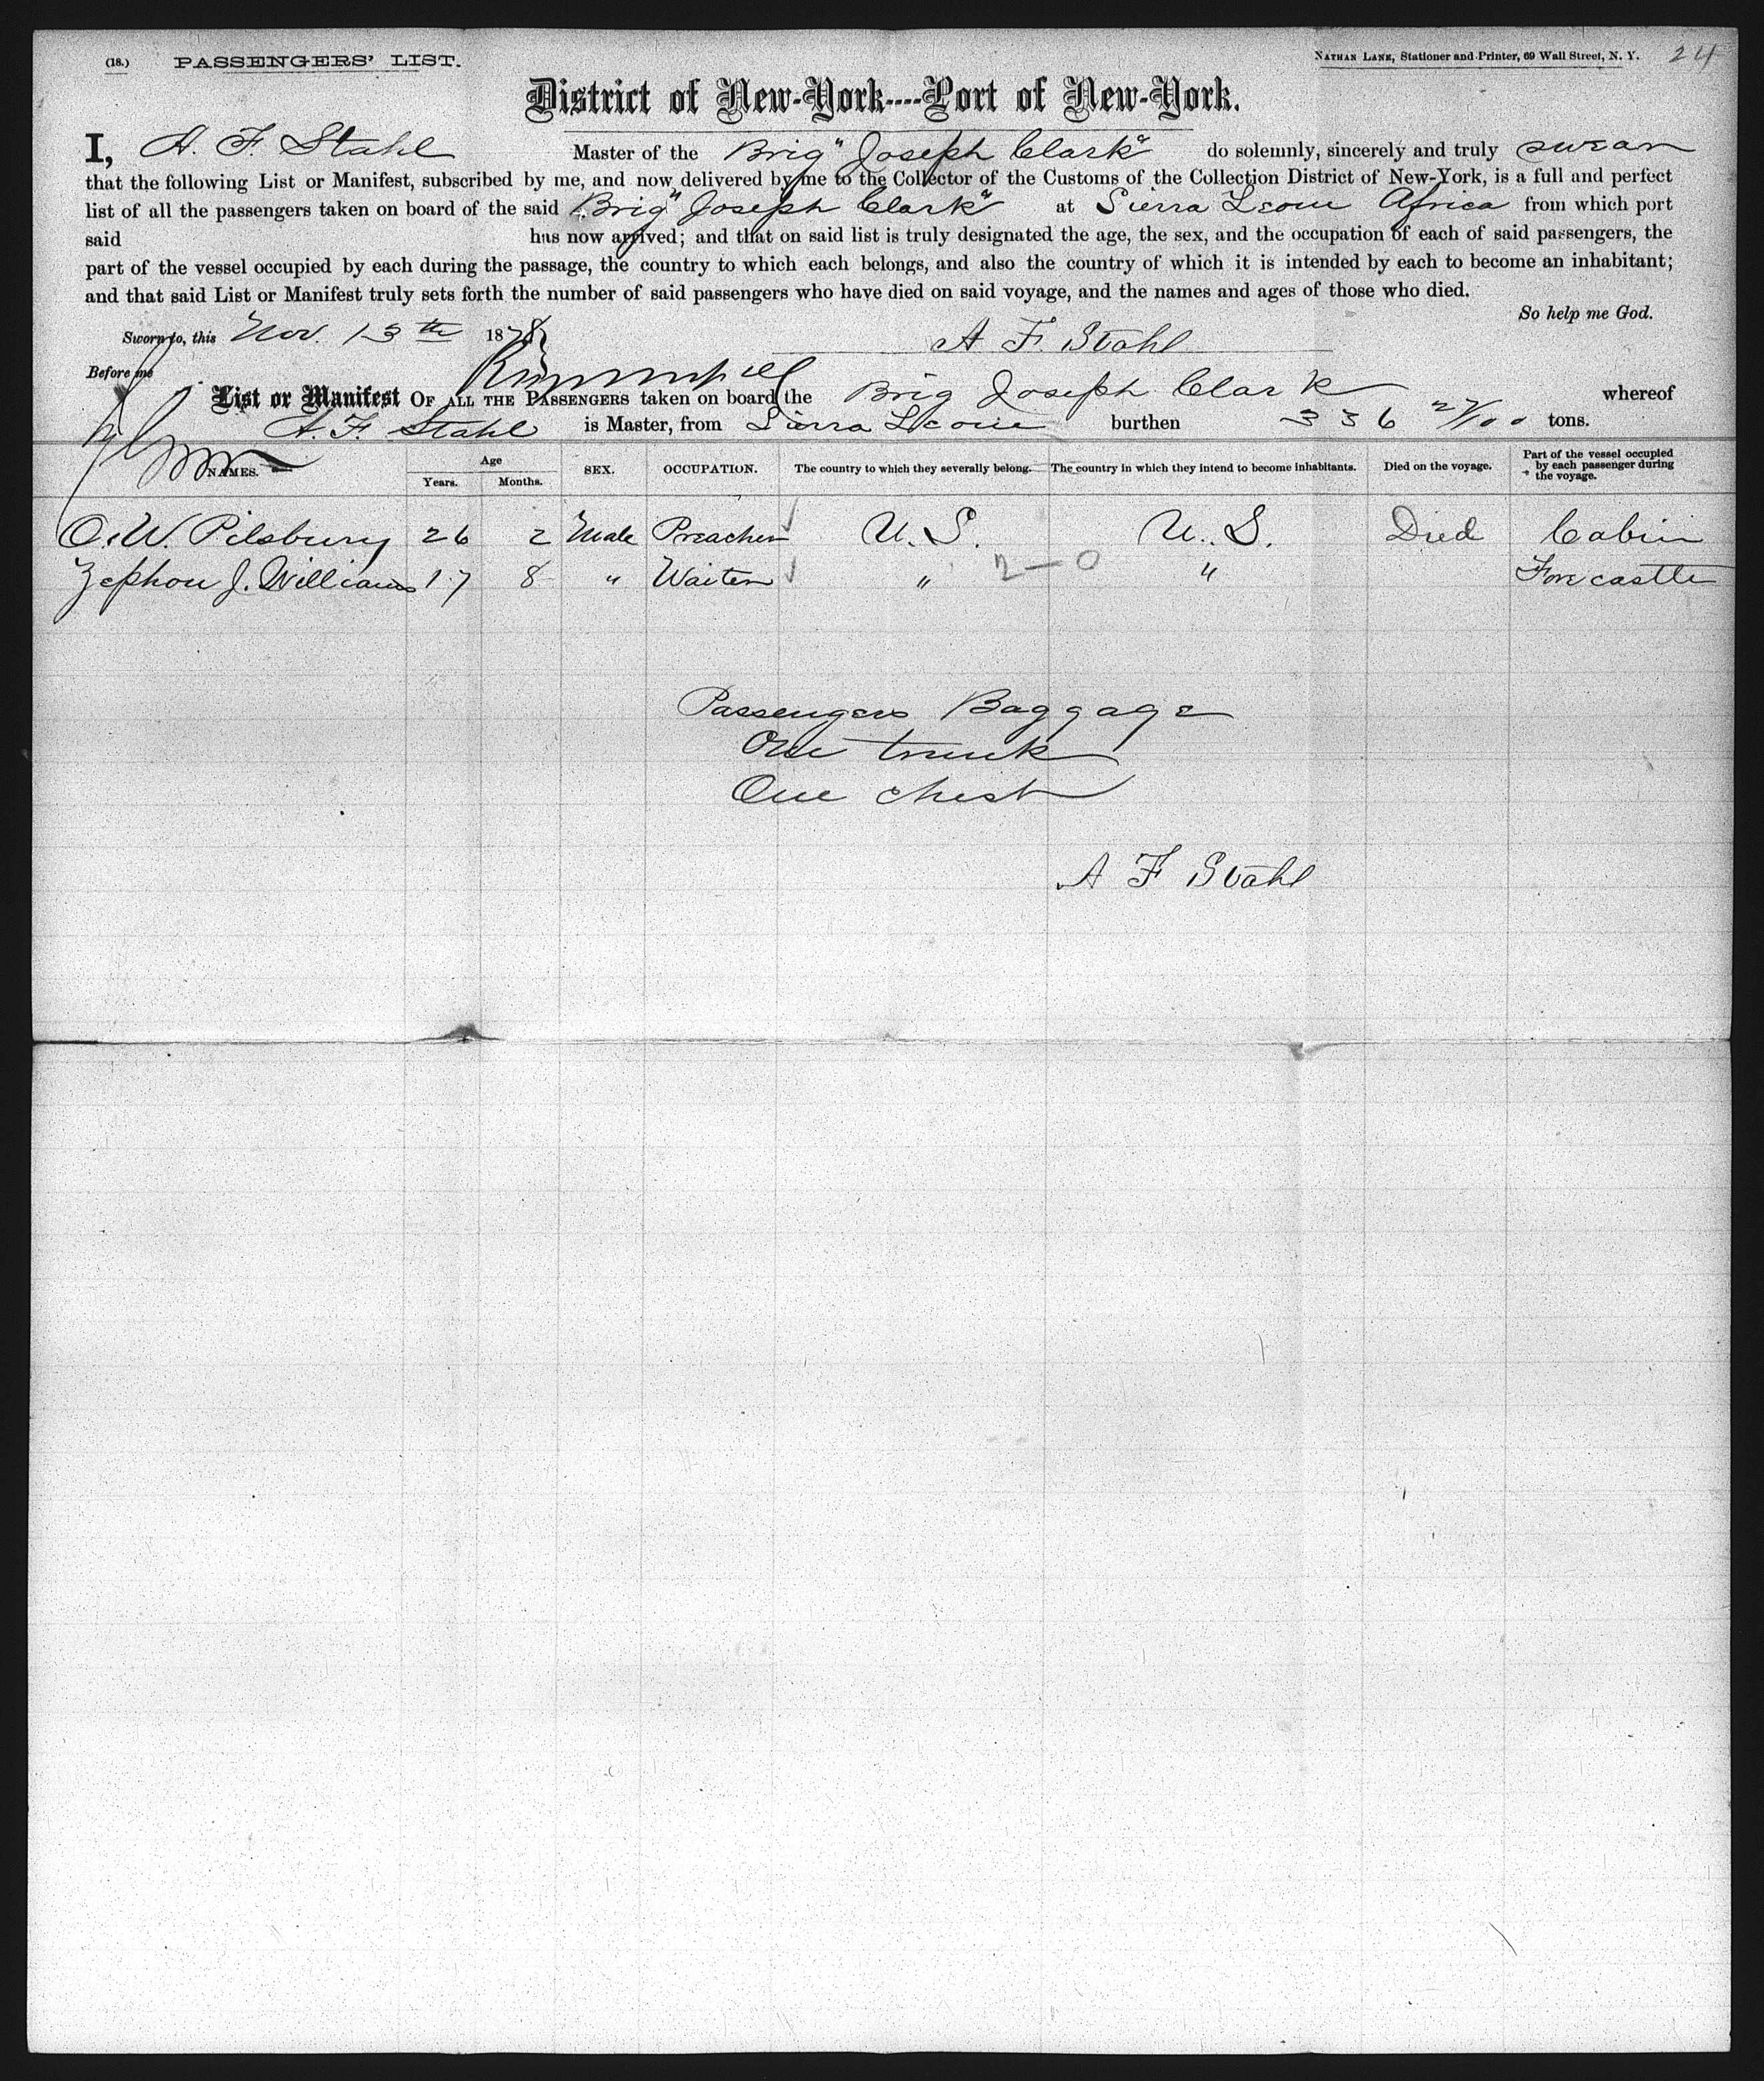 (18.) PASSENGERS' LIST. NATHAN LANE, Stationer and Printer, 69 Wall Street, N. Y. 24
District of New-York----Port of New-York.
I, A. F. Stahl Master of the Brig "Joseph Clark" do solemnly, sincerely and truly swear
that the following List or Manifest, subscribed by me, and now delivered by me to the Collector of the Customs of the Collection District of New-York, is a full and perfect
list of all the passengers taken on board of the said Brig "Joseph Clark" at Sierra Leone Africa from which port
said has now arrived; and that on said list is truly designated the age, the sex, and the occupation of each of said passengers, the
part of the vessel occupied by each during the passage, the country to which each belongs, and also the country of which it is intended by each to become an inhabitant;
and that said List or Manifest truly sets forth the number of said passengers who have died on said voyage, and the names and ages of those who died.
So help me God.
Sworn to, this Nov. 13th 1878 A F. Stahl
Before me
List or Manifest OF ALL THE PASSENGERS taken on board the Brig Joseph Clark whereof
A. F. Stahl is Master, from Sierra Leone burthen 336 27/100 tons.
NAMES. Age Years. Months. SEX. OCCUPATION. The country to which they severally belong. The country in which they intend to become inhabitants. Died on the voyage. Part of the vessel occupied by each passenger during the voyage.
O. W. Pilsbury 26 2 Male Preacher U. S. U. S. Died Cabin
Zephou J. Williams 17 8 " Waiter " 2-0 " Forecastle
Passengers Baggage
One trunk
One chest
A F Stahl